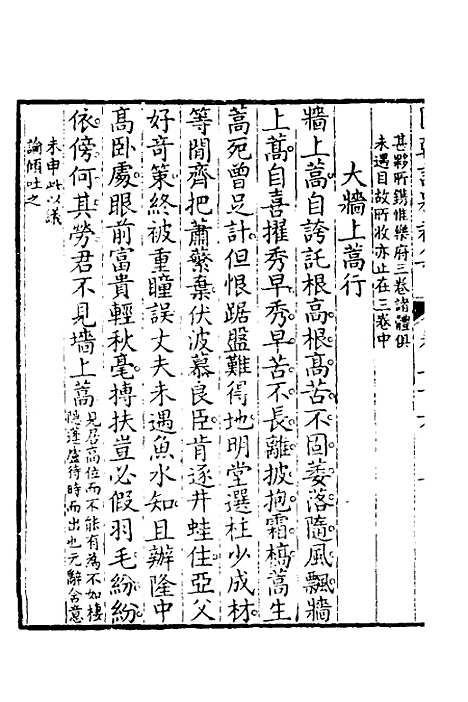 甚夥所鐫惟樂府三卷諸體俱
未遇目故所收亦止在三卷中
大牆上蒿行
牆上蒿自誇託根高根高苦不固萎落隨風飄牆
上蒿自喜擢秀早秀早苦不長離披抱霜槁蒿生
蒿死曾足計但恨踞盤難得地明堂選柱少成材
等閒齊把蕭蘩棄伏波慕良臣肯逐井蛙住亞父
好奇策終被重瞳誤丈夫未遇魚水知且辦隆中
高臥處眼前富貴輕秋毫摶扶豈必假羽毛紛紛
依傍何其勞君不見墻上蒿
見居高位而不能有為不如棲
隱蓬廬待時而出也元辭含意
未申此以議
論傾吐之